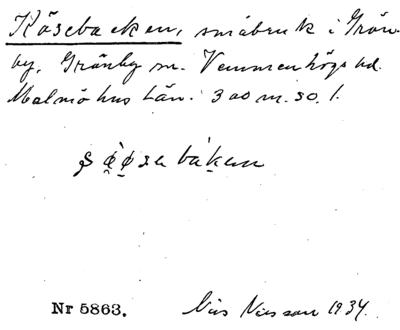 Kösebacken, småbruk i Grön-
by, Grönby sn. Vemmenhögs hd.
Malmöhus län. 300 m. SO. 1.
Nr 5863. Nils Nilsson 1934.